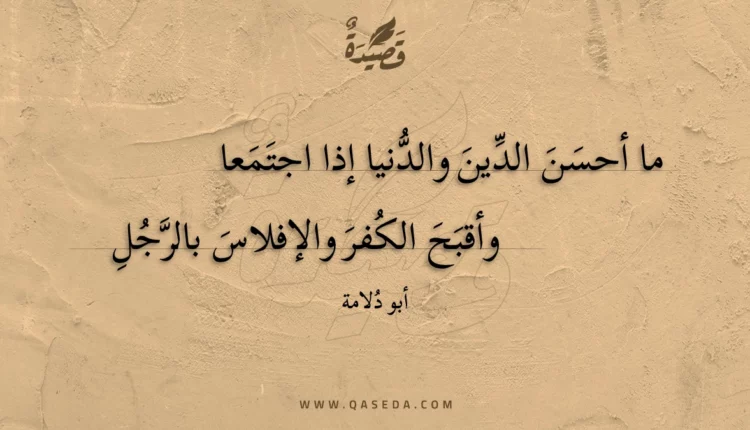 قَصِيدَةٌ
ما أحسَنَ الدِّينَ والدُّنيا إذا اجتَمَعا
وأقبَحَ الكُفرَ والإفلاسَ بالرَّجُلِ
أبو دُلامة
WWW.QASEDA.COM